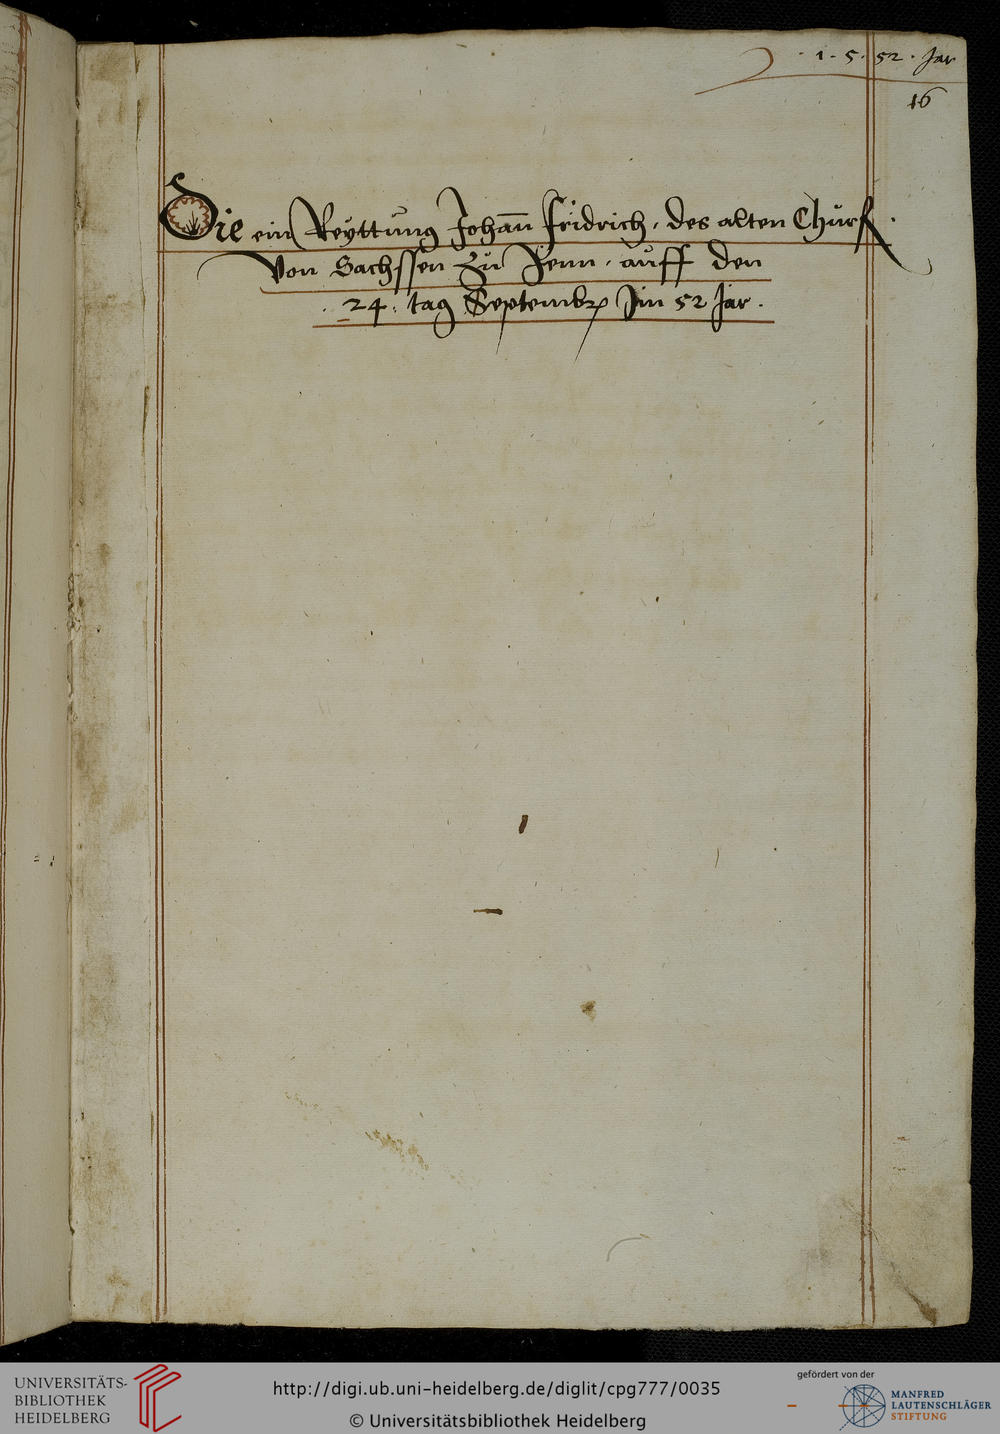 · 1 · 5 · 52 · Jar
16
Die ein Reyttung Johan̄ Fridrich, des alten Churf.
Von Sachssen Zu Jenn, auff den
24. tag Septembr Jm 52 Jar.
UNIVERSITÄTS-
BIBLIOTHEK
HEIDELBERG
http://digi.ub.uni-heidelberg.de/diglit/cpg777/0035
© Universitätsbibliothek Heidelberg
gefördert von der
MANFRED
LAUTENSCHLÄGER
STIFTUNG